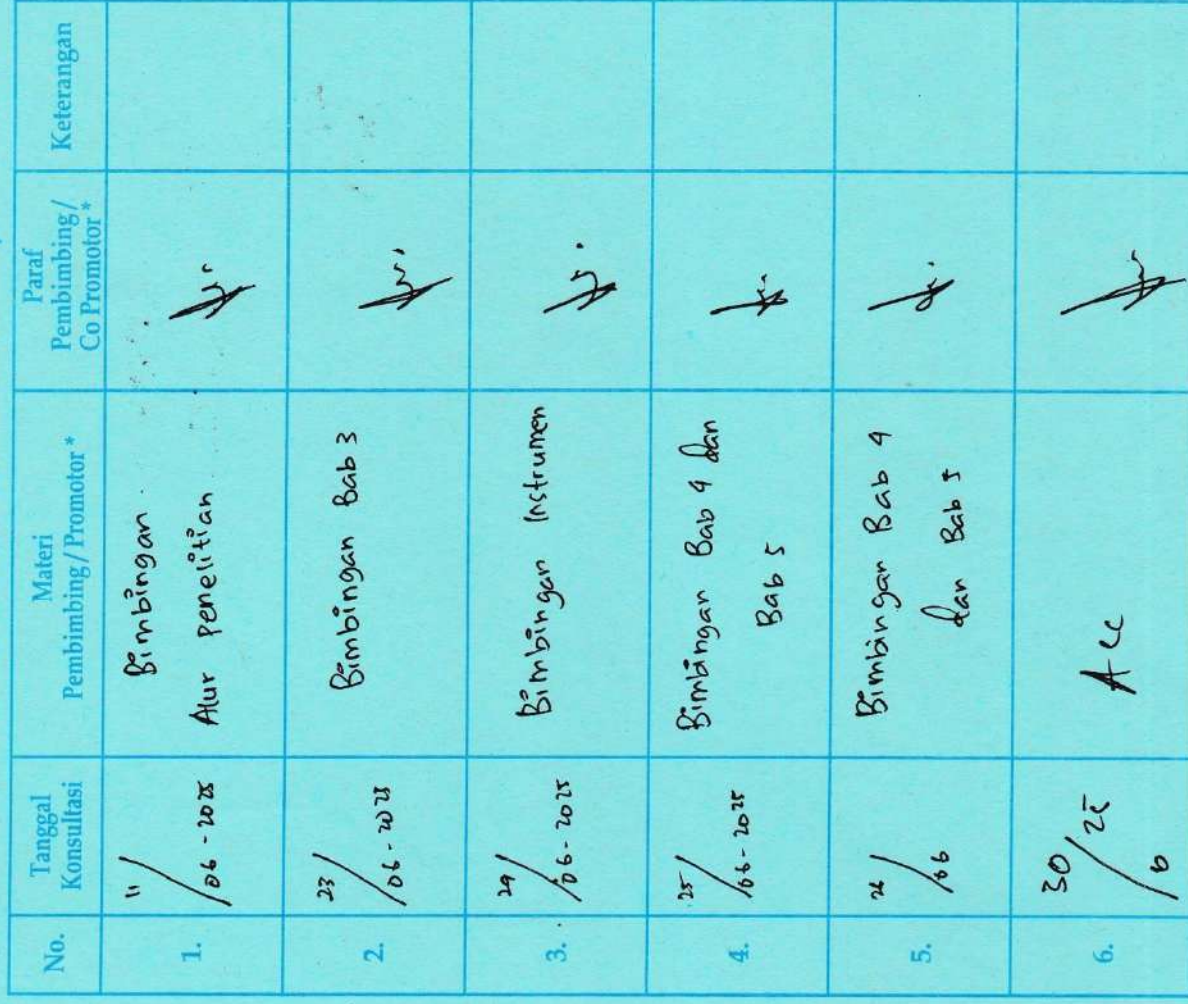 No.
Tanggal
Konsultasi
Materi
Pembimbing / Promotor *
Paraf
Pembimbing /
Co Promotor *
Keterangan
1.
11/06 - 2025
Bimbingan
Alur penelitian
2.
23/06 - 2025
Bimbingan Bab 3
3.
24/06 - 2025
Bimbingan Instrumen
4.
25/06 - 2025
Bimbingan Bab 4 dan
Bab 5
5.
26/06
Bimbingan Bab 4
dan Bab 5
6.
30/6 25
Acc